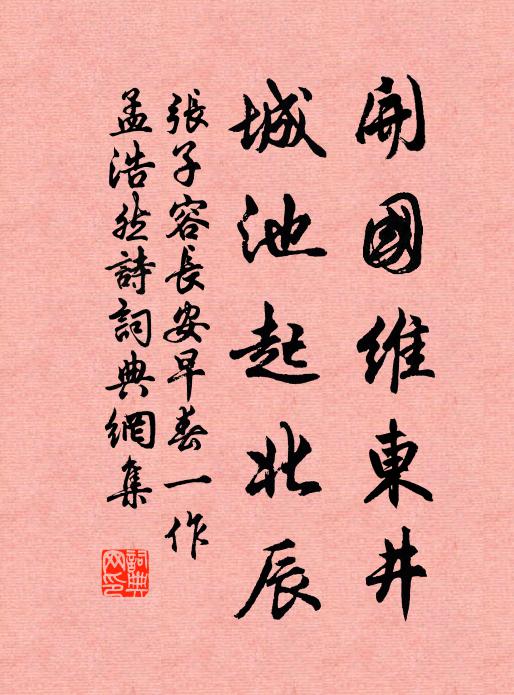 開國維東井
城池起北辰
張子容長安早春一作
孟浩然詩詞典網集
詞典網印